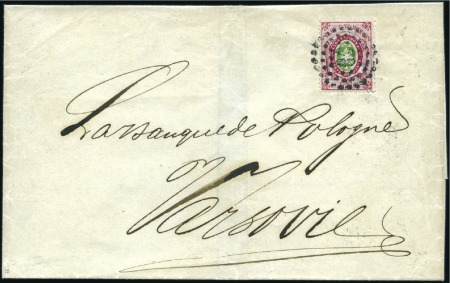 La banque de Pologne
Varsovie